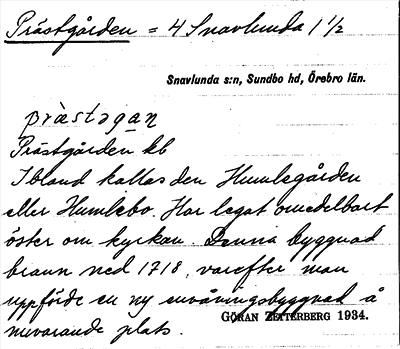 Prästgården = 4 Snavlunda 1 1/2
Snavlunda s:n, Sundbo hd, Örebro län.
pràstagan
Prästgården kb
Ibland kallas den Humlegården
eller Humlebo. Har legat omedelbart
öster om kyrkan. Denna byggnad
brann ned 1718, varefter man
uppförde en ny envåningsbyggnad å
nuvarande plats.
GÖRAN ZETTERBERG 1934.